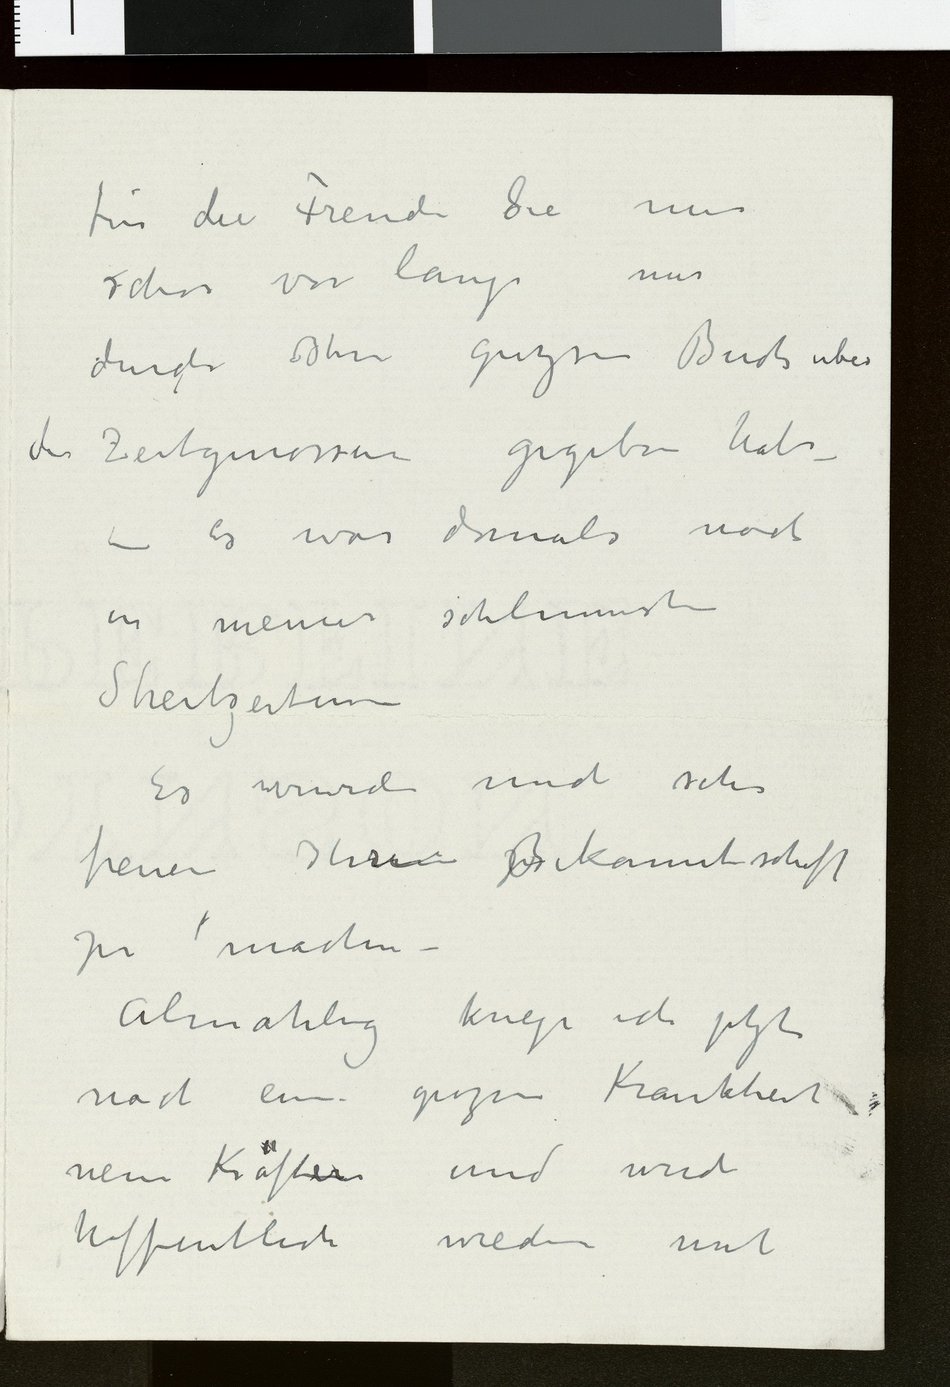 für die Freude Sie mir
schon vor lange mir
durch Ihre grozse Buch über
die Zeitgenossen gegeben habe –
– Es war damals noch
in meiner schlimmste
Streitzeiten
Es wurde mich sehr
freuen Ihre Bekanntschaft
zu machen –
Almählig kriege ich jetzt
nach eine grozse Krankheit
neue Kräfte und werde
hoffentlich wieder mit